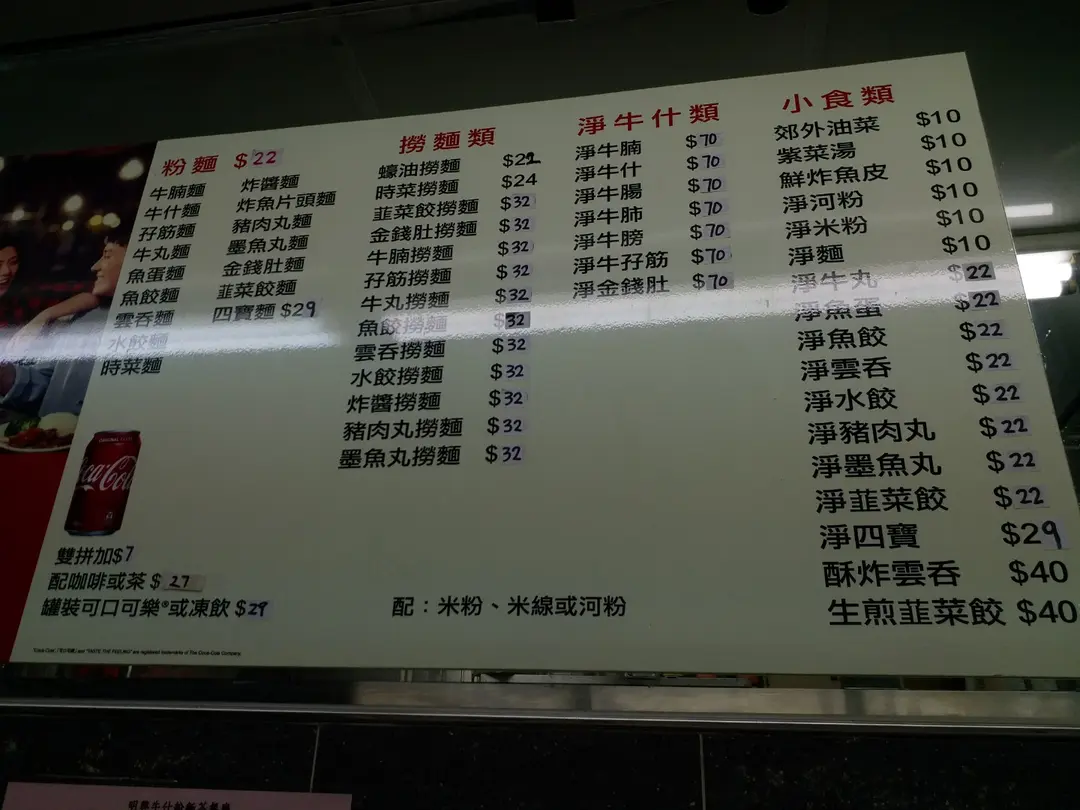 粉麵 $22
牛腩麵
牛什麵
孖筋麵
牛丸麵
魚蛋麵
魚餃麵
雲吞麵
水餃麵
時菜麵
炸醬麵
炸魚片頭麵
豬肉丸麵
墨魚丸麵
金錢肚麵
韮菜餃麵
四寶麵 $29
撈麵類
蠔油撈麵 $22
時菜撈麵 $24
韮菜餃撈麵 $32
金錢肚撈麵 $32
牛腩撈麵 $32
孖筋撈麵 $32
牛丸撈麵 $32
魚餃撈麵 $32
雲吞撈麵 $32
水餃撈麵 $32
炸醬撈麵 $32
豬肉丸撈麵 $32
墨魚丸撈麵 $32
淨牛什類
淨牛腩 $70
淨牛什 $70
淨牛腸 $70
淨牛肺 $70
淨牛膀 $70
淨牛孖筋 $70
淨金錢肚 $70
小食類
郊外油菜 $10
紫菜湯 $10
鮮炸魚皮 $10
淨河粉 $10
淨米粉 $10
淨麵 $10
淨牛丸 $22
淨魚蛋 $22
淨魚餃 $22
淨雲吞 $22
淨水餃 $22
淨豬肉丸 $22
淨墨魚丸 $22
淨韮菜餃 $22
淨四寶 $29
酥炸雲吞 $40
生煎韮菜餃 $40
ORIGINAL TASTE
Coca-Cola
雙拼加$7
配咖啡或茶 $27
罐裝可口可樂®或凍飲 $29
配：米粉、米線或河粉